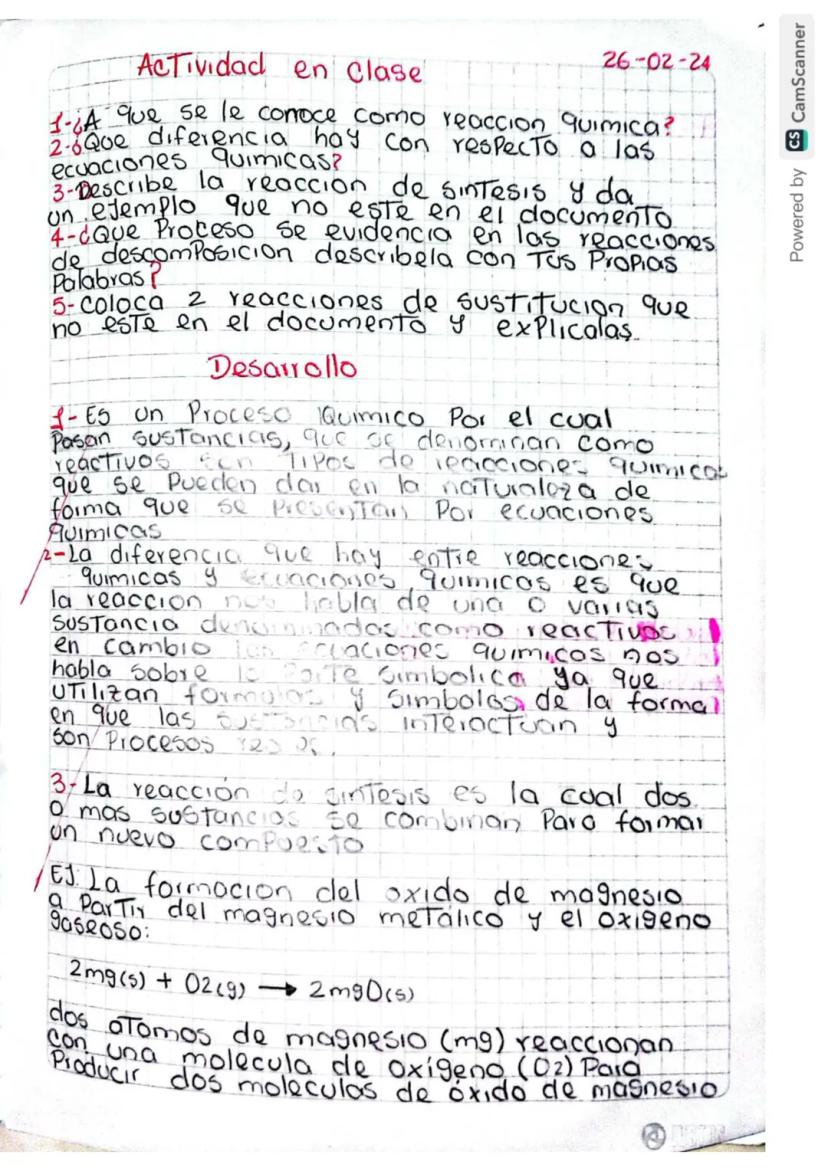 Actividad en clase
26-02-24
1-¿A que se le conoce como reaccion quimica?
2-¿Que diferencia hay con respecto a las
ecuaciones quimicas?
3-Describe la reaccion de sintesis y da
un ejemplo que no este en el documento
4-¿Que Proceso se evidencia en las reacciones
de descomposicion describela con Tus Propias
Palabras?
5-coloca 2 reacciones de sustitucion que
no este en el documento y explicalas.
Desarrollo
1-Es un Proceso Quimico Por el cual
Pasan sustancias, que se denominan como
reactivos son Tipos de reacciones quimicas
que se Pueden dar en la naturaleza de
forma que se Presentan Por ecuaciones
quimicas
2-La diferencia que hay entre reacciones
quimicas y ecuaciones quimicos es que
la reaccion nos habla de una o varias
sustancia denominadas como reactivos
en cambio las ecuaciones quimicos nos
habla sobre la Parte simbolica ya que
utilizan formulas y simbolos de la forma
en que las sustancias interactuan y
son Procesos
3-La reacción de sintesis es la cual dos
o mas sustancias se combinan Para formar
un nuevo compuesto
EJ. La formacion del oxido de magnesio
a Partir del magnesio metálico y el oxigeno
gaseoso:
2mg(s) + O2(g) → 2mgO(s)
dos atomos de magnesio (mg) reaccionan
con una molecula de oxígeno (O2) Para
Producir dos moleculas de óxido de magnesio
Powered by CS CamScanner